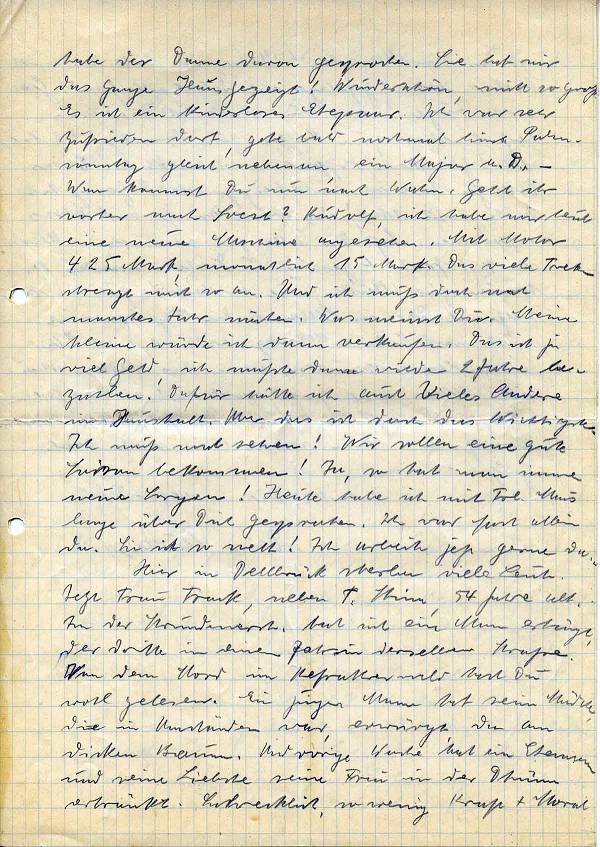 habe der Dame davon gesprochen. Sie hat mir
das ganze Haus gezeigt! Wunderschön, nicht so groß
Es ist ein kinderloses Ehepaar. Ich war sehr
zufrieden dort, gehe bald nochmal hin. Palm-
sonntag gleich nebenan, ein Major a. D. –
Wann kommst Du nun nach Wahn. Geht ihr
vorher nach Soest? Rudolf, ich habe mir heute
eine neue Maschine angesehen. Mit Motor
425 Mark, monatlich 15 Mark. Das viele Treten
strengt mich so an. Und ich muß doch noch
manches Jahr nähen. Was meinst Du. Meine
kleine würde ich dann verkaufen. Das ist ja
viel Geld, ich müßte dann wieder 2 Jahre be-
zahlen! Dafür hätte ich auch Vieles Andere
im Haushalt. Aber das ist doch das Wichtigste
Ich muß noch sehen! Wir sollen eine gute
Saison bekommen! Ja, so hat man immer
seine Sorgen! Heute habe ich mit Frl. Maus
lange über Dich gesprochen. Ich war fast allein
da. Sie ist so nett! Ich arbeite jetzt gerne da.
Hier in Dellbrück sterben viele Leute.
Jetzt Frau Frank, neben T. 54 Jahre alt.
In der hat sich ein Mann erhängt,
der dritte in einem Jahr in derselben Straße.
Von dem Mord im Refratherwald hast Du
wohl gelesen. Ein junger Mann hat sein Mädchen,
die in Umständen war, erwürgt da am
dicken Baum. Und vorige Woche hat ein Ehemann
und seine Liebste seine Frau in der Dhünn
ertränkt. Schrecklich, so wenig Kraft + Moral